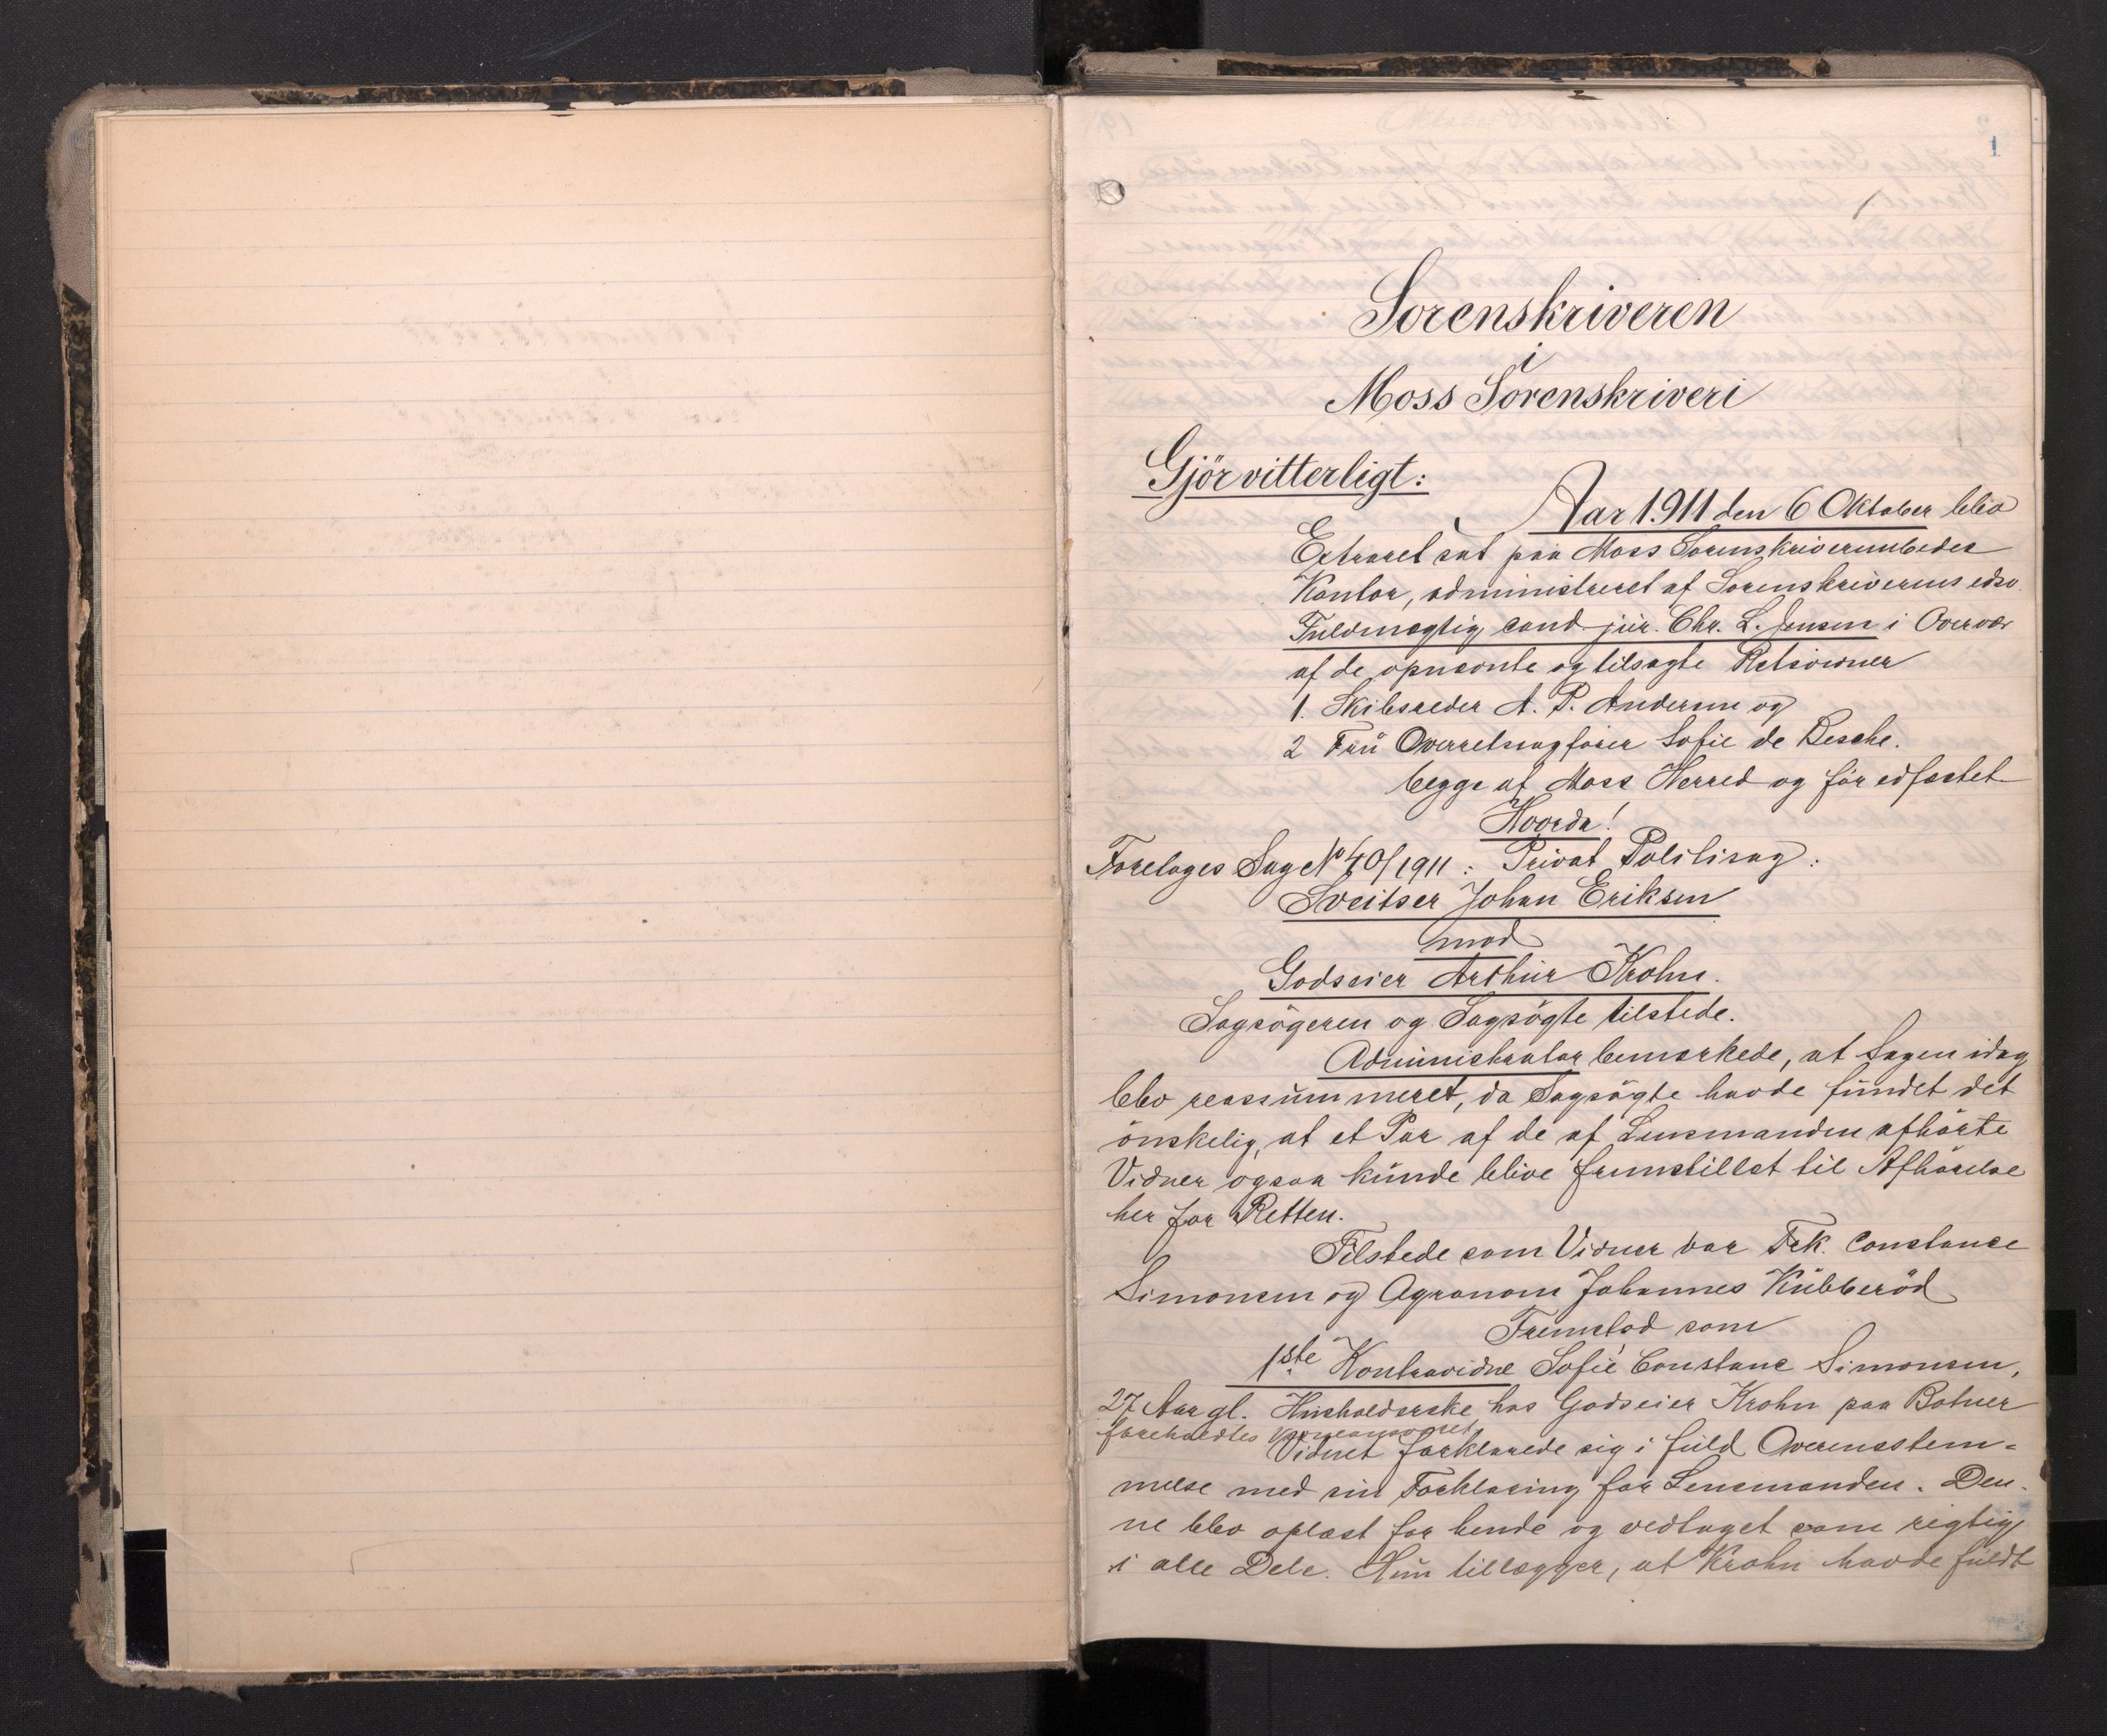 1
1
Sorenskriveren
i
Moss Sorenskriveri
Gjör vitterligt:
Aar 1.911 den 6 Oktober blev
Extraret sat paa Moss Sorenskriverembedes
Kontor, administreret af Sorenskriverens edsv.
Fuldmægtig cand. jur. Chr. L. Jensen i Overvær
af de opnævnte og tilsagte Retsvidner
1. Skibsreder A. P. Andersen og
2 Frü Overretssagfører Sofie de Besche.
begge af Moss Herred og før edfæstet
Hvorda!
Foretoges Sag No 40/1911: Privat Politisag:
Sveitser Johan Eriksen
mod
Godseier Arthür Krohn.
Sagsögeren og Sagsögte tilstede.
Administrator bemærkede, at Sagen idag
blev reassümmeret, da Sagsögte havde fündet det
önskelig, at et Par af de af Lensmanden afhørte
Vidner ogsaa künde blive fremstillet til Afhørelse
her for Retten.
Tilstede som Vidner var Frk. Constance
Simonsen og Agronom Johannes Kübberöd
Fremstod som
1ste Kontravidne Sofie Constance Simonsen,
27 Aar gl. Hüsholderske hos Godseier Krohn paa Botner
foreholdtes Vidneansvaret
Vidnet forklarede sig i füld Overensstem-
melse med sin Forklaring for Lensmanden. Den-
ne blev oplæst for hende og vedtaget som rigtig
i alle Dele. Hün tillægger, at Krohn havde füldt